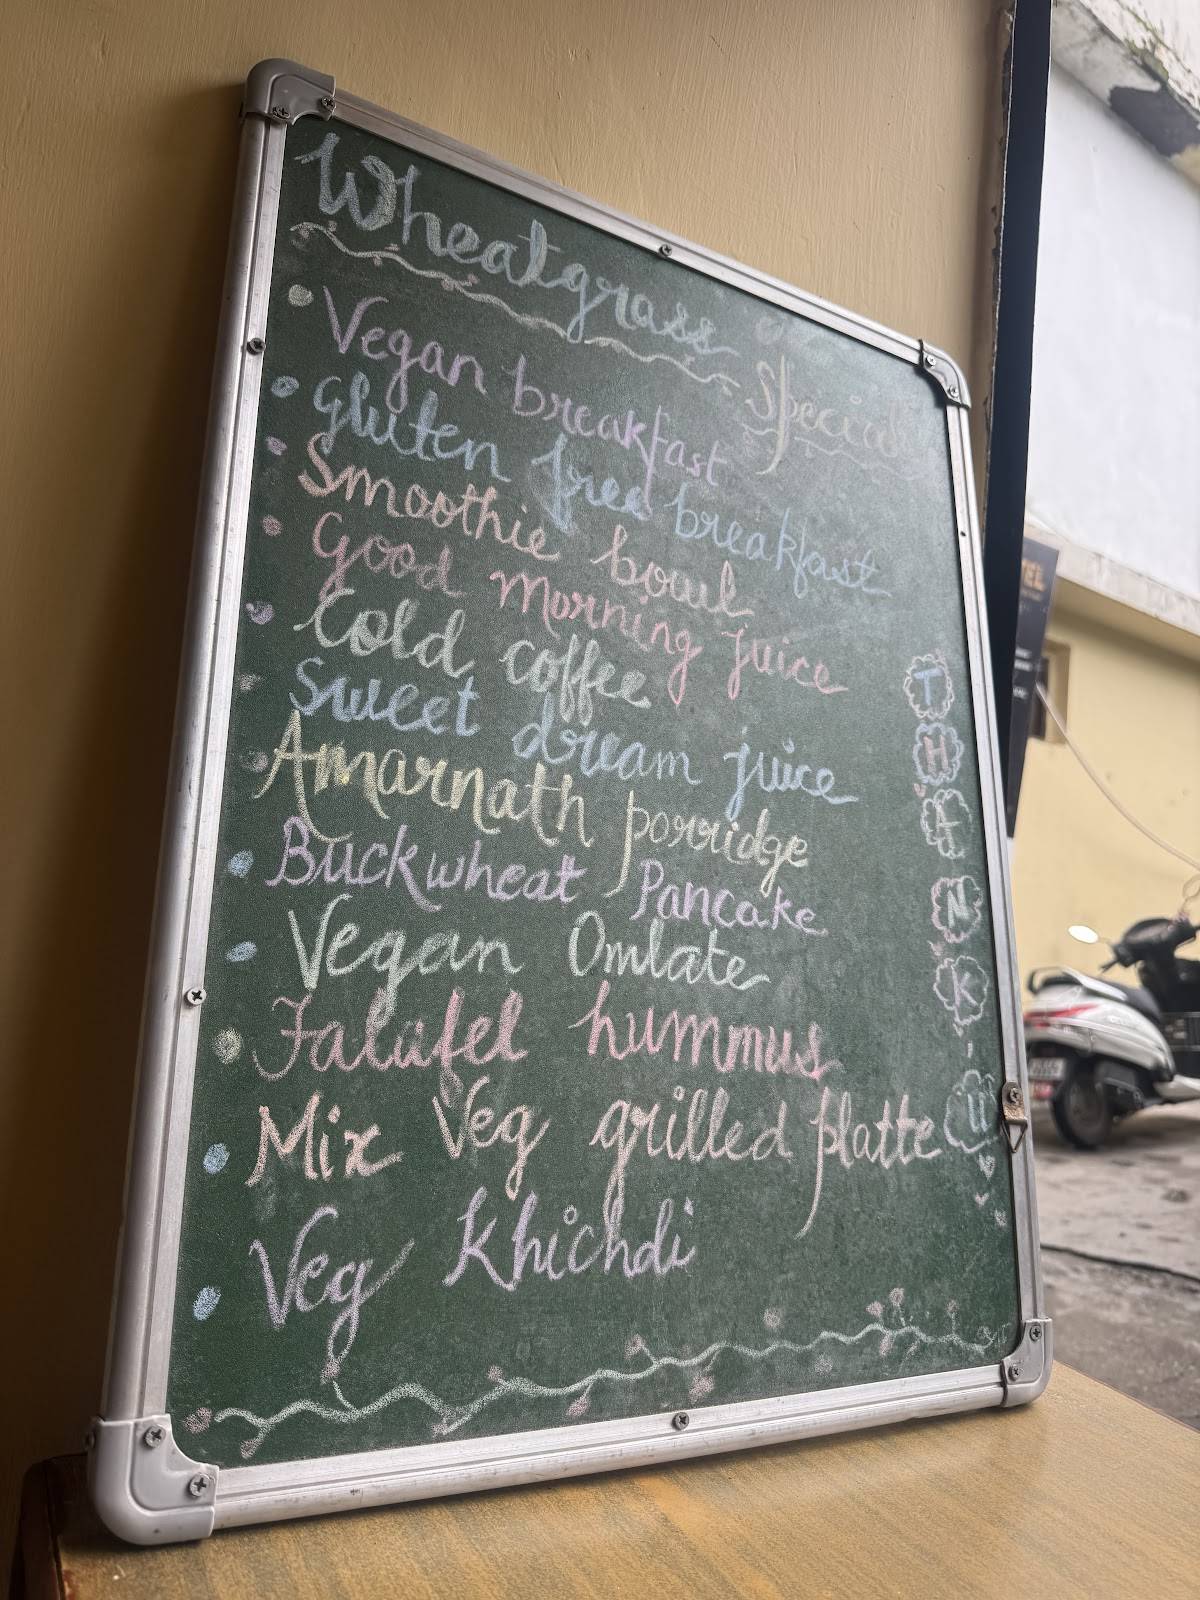 Wheatgrass Special
Vegan breakfast
Gluten free breakfast
Smoothie bowl
Good morning juice
Cold coffee
Sweet dream juice
Amarnath porridge
Buckwheat Pancake
Vegan Omlate
Falafel hummus
Mix Veg grilled platte
Veg Khichdi
THANK
U